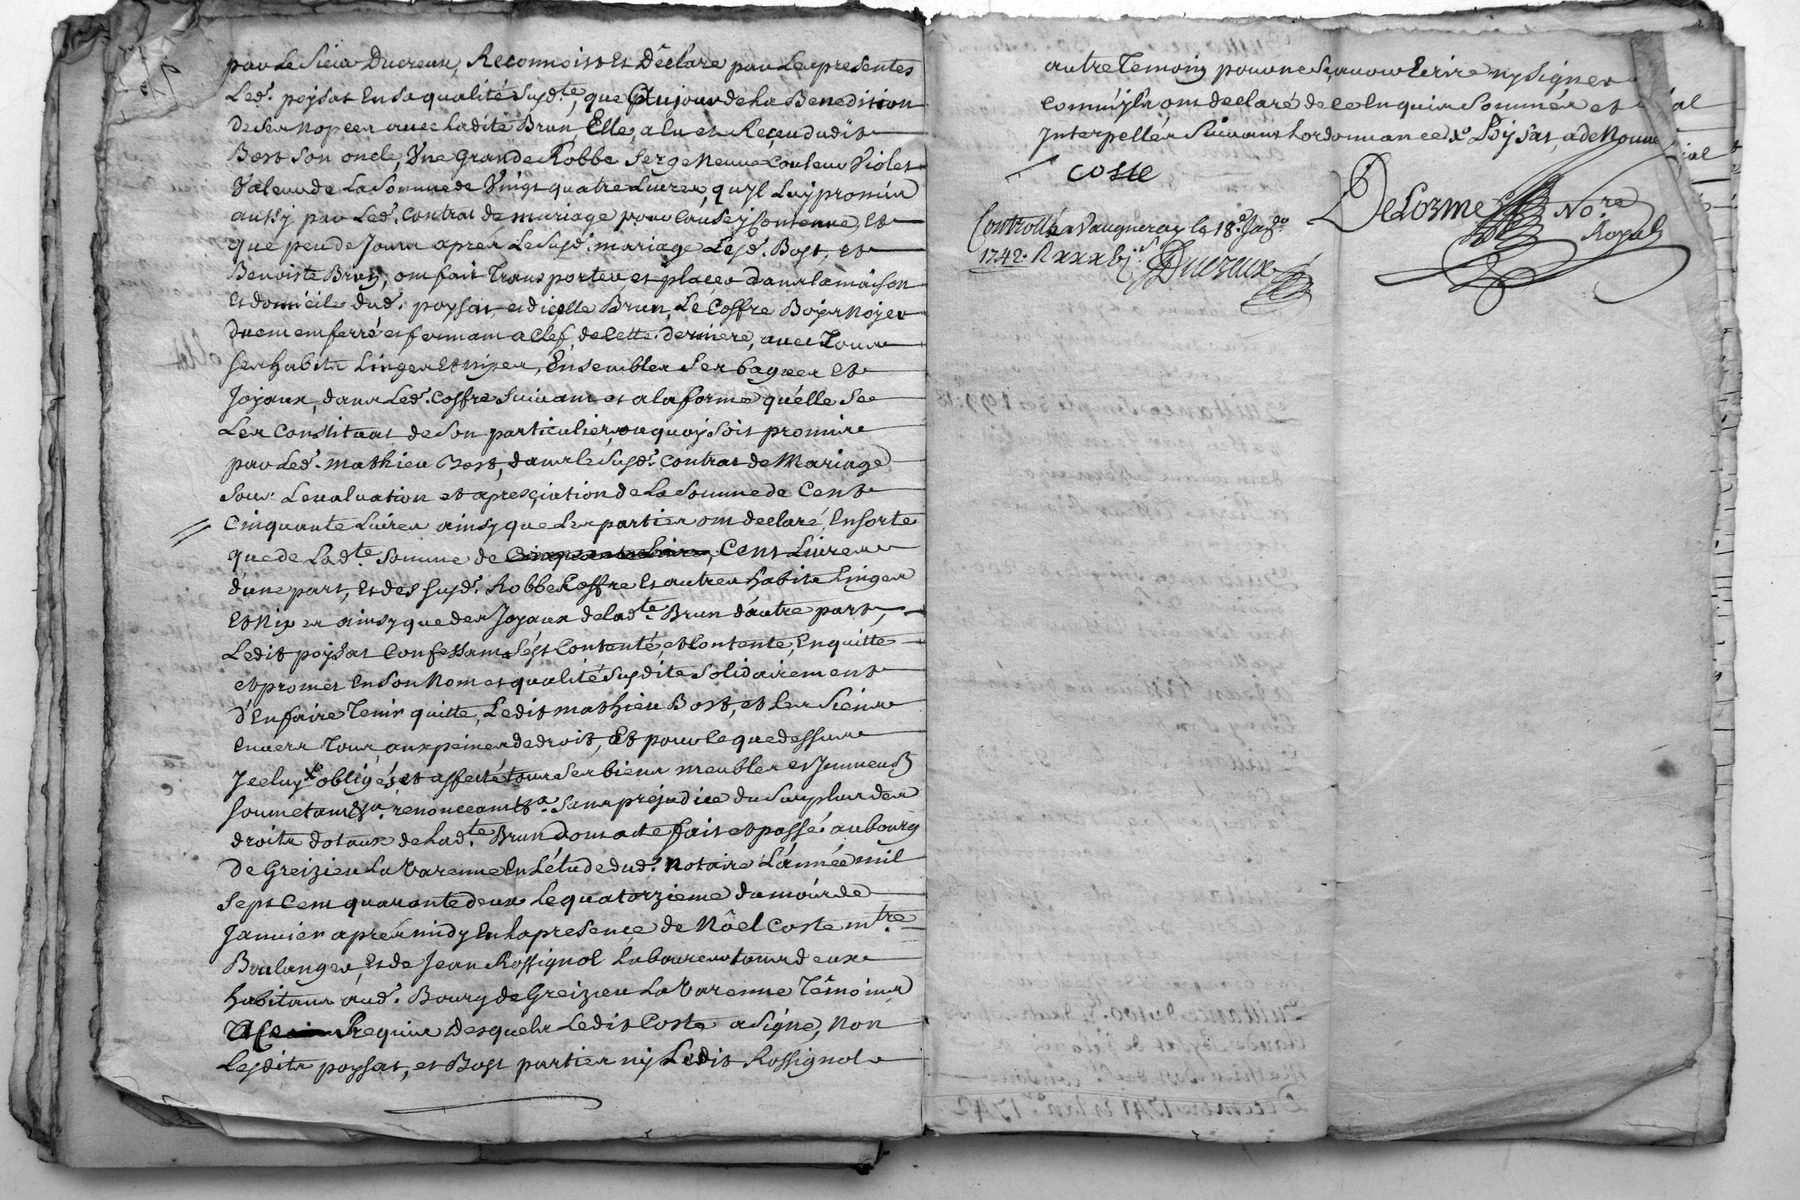 par Le Sieur Ducreux, Reconnoist Et Déclare par Les presentes
Led.t poysat En sa qualité susd.te, que Dujour de la Benedition
de ses nopces avec Ladite Brun, Elle, a lu et Reçeu dudit
Bost son oncle, Une grande Robbe Serge neuve couleur Violet
Valeur de La Somme de Vingt quatre Livres, qu'yl Luy promis
aussy par Led.t Contrat de mariage pour Causey Contenue, Et
que peu de Jours aprés Le susd.t mariage Lesd.t Bost, Et
Benoiste Brun, ont fait Transporter, et placer dans la maison
Et domicile dud.t poysat et dicelle Brun, Le Coffre Boys Noyer
duement ferré et fermant a Clef, de Cette derniere, avec Tous
ses habits Linges Et nipes, Ensembles ses bagues Et
Joyaux, dans Led.t Coffre Suivant et a la forme qu'elle se
Les Constituat de son particulier, ou quoy soit promire
par Led.t mathieu Bost, dans le susd.t Contrat de Mariage
sous Levaluation et apresçiation de La Somme de Cent
Cinquante Livres ainsy que Les parties ont declaré, Ensorte
que de Lad.te Somme de Cinquante Livres, Cent Livres
d'une part, Et des susd.t Robbe Coffre Et autres habits Linges
Et Nipes ainsy que des Joyaux de lad.te Brun d'autre part,
Ledit poysat Confessant s'est Contenté, et Contente, En quitte
et promet En son Nom et qualité susdite solidairement
d'En faire Tenir quitte, Ledit mathieu Bost, et Les Siens
Envers Tous, aux peines de droit, Et pour le que dessus
Jceluy x obligés et affecté tous ses biens meubles et Jmmeub
soumetant &a. renonceant &a. Sans prejudice du Surplus des
droits dotaux de Lad.te Brun dont acte fait et passé au bourg
de Greizieu La Varenne En L'étude dud.t Notaire L'année mil
sept Cent quarante deux Le quatorzieme du mois de
Janvier aprés midy En la presence de Nöel Coste m.tre
Boulanger, Et de Jean Rossignol Laboureur tous deux
habitans aud.t Bourg de Greizieu La Varenne Témoins
Requis Desquels Ledit Coste a signé, Non
Lesdits poysat, et Bost parties ny Ledit Rossignol
autre Temoing pour ne sçavoir Ecrire ny signer
Comm'yls ont declaré de ce Enquis Sommés et
Jnterpellés Suivant Lordonnance x. Poysat a de Nouve
coste
DeLorme No.re
Royal
Controllé a Vaugneray le 18.e Jan.er
1742.
Ducreux